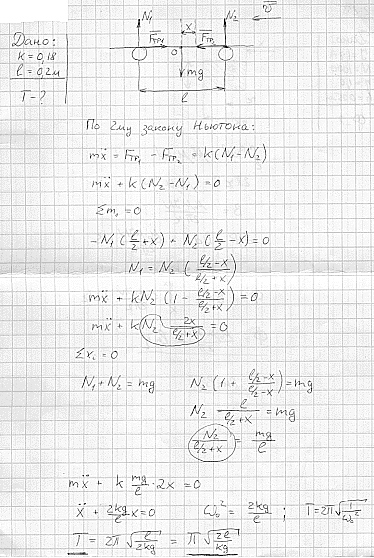 N₁ x N₂ v̄
Дано:
k = 0,18
l = 0,2м
T - ?
F̄тр₁ F̄тр₂
0
mg
l
По 2му закону Ньютона:
mẍ = Fтр₁ - Fтр₂ = k(N₁-N₂)
mẍ + k(N₂-N₁) = 0
Σm₀ = 0
-N₁(l/2+x) + N₂(l/2-x) = 0
N₁ = N₂ ((l/2-x)/(l/2+x))
mẍ + kN₂ (1 - (l/2-x)/(l/2+x)) = 0
mẍ + k N₂ 2x/(l/2+x) = 0
Σxᵢ = 0
N₁ + N₂ = mg N₂ (1 + (l/2-x)/(l/2-x)) = mg
N₂ l/(l/2+x) = mg
N₂/(l/2+x) = mg/l
mẍ + k mg/l · 2x = 0
ẍ + 2kg/l x = 0 ω₀² = 2kg/l ; T = 2π√(1/ω₀²)
T = 2π√(l/2kg) = π√(2l/kg)